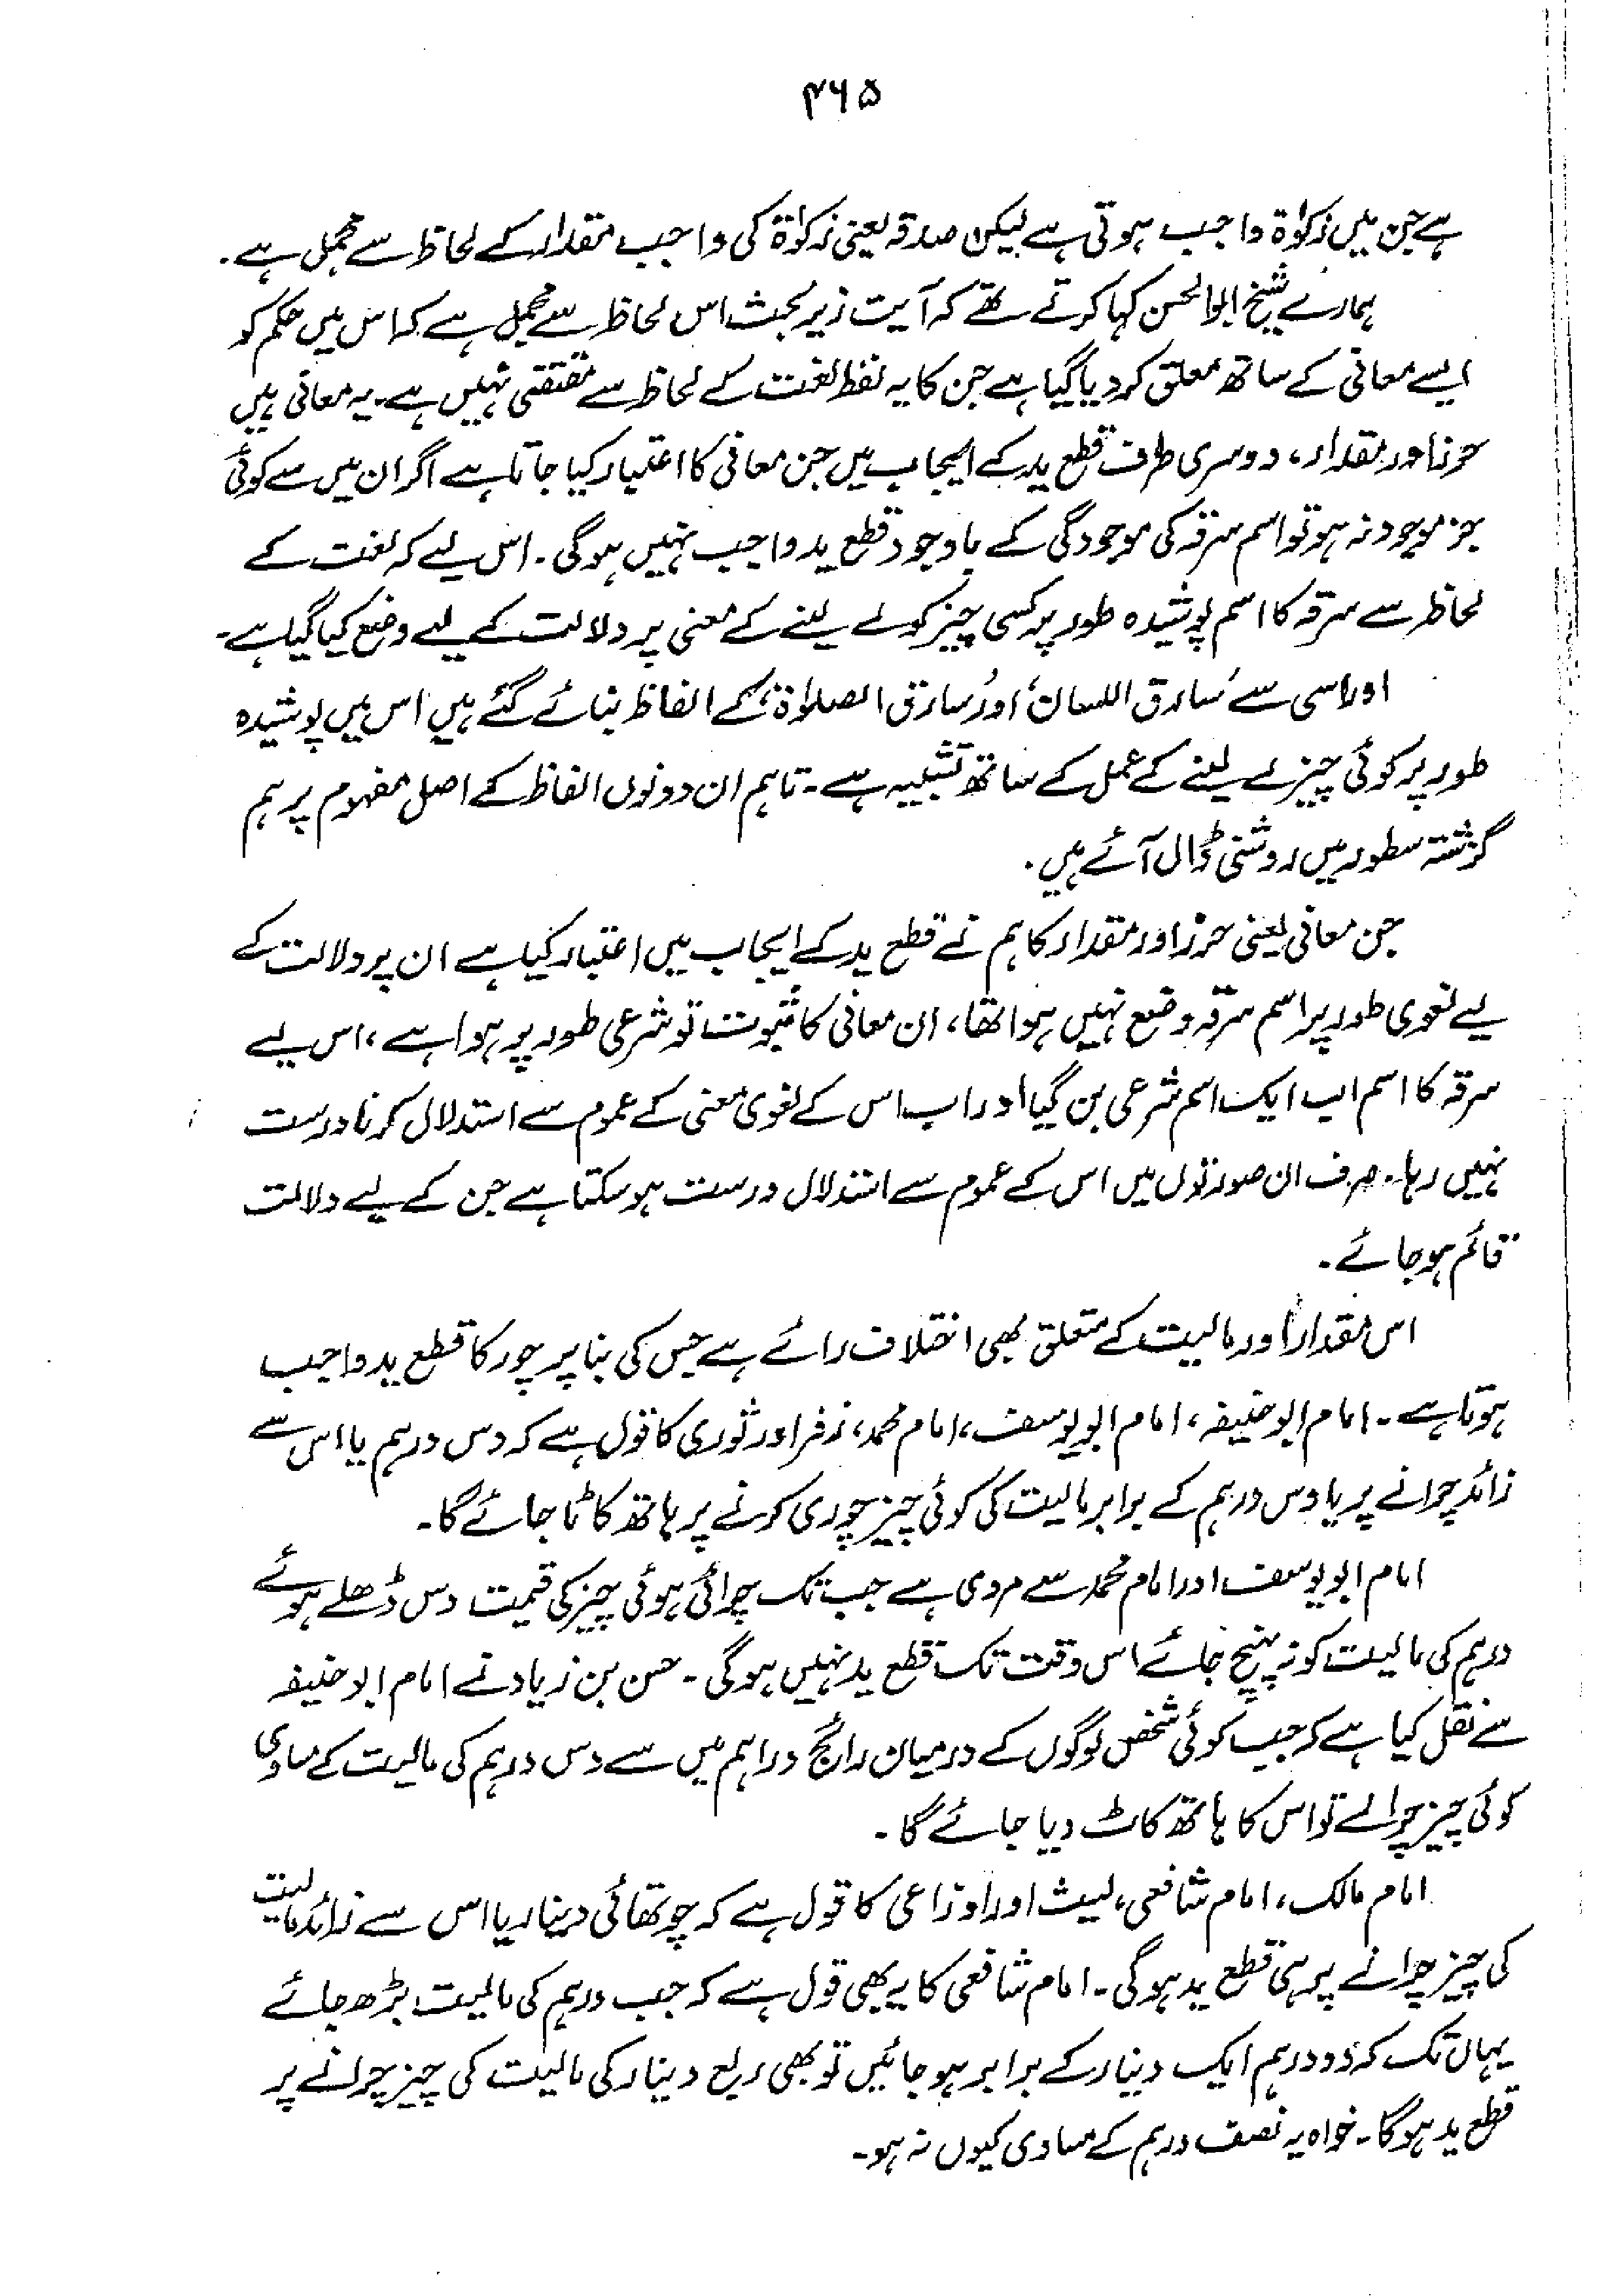 ۴۶۵
ہے جن میں زکوٰۃ واجب ہوتی ہے لیکن صدقہ یعنی زکوٰۃ کی واجب مقدار کے لحاظ سے مجمل ہے۔
ہمارے شیخ ابوالحسن کہا کرتے تھے کہ آیت زیر بحث اس لحاظ سے مجمل ہے کہ اس میں حکم کو
ایسے معانی کے ساتھ معلق کر دیا گیا ہے جن کا یہ لفظ لغت کے لحاظ سے مقتضی نہیں ہے۔ یہ معانی ہیں
حرز اور مقدار، دوسری طرف قطع ید کے ایجاب میں جن معانی کا اعتبار کیا جاتا ہے اگر ان میں سے کوئی
جز موجود نہ ہو تو اسم سرقہ کی موجودگی کے باوجود قطع ید واجب نہیں ہوگی۔ اس لیے کہ لغت کے
لحاظ سے سرقہ کا اسم پوشیدہ طور پر کسی چیز کو لے لینے کے معنی پر دلالت کے لیے وضع کیا گیا ہے۔
اور اسی سے 'سارق اللسان' اور 'سارق الصلوٰۃ' کے الفاظ بنائے گئے ہیں اس میں پوشیدہ
طور پر کوئی چیز لے لینے کے عمل کے ساتھ تشبیہ ہے۔ تاہم ان دونوں الفاظ کے اصل مفہوم پر ہم
گزشتہ سطور میں روشنی ڈال آئے ہیں۔
جن معانی یعنی حرز اور مقدار کا ہم نے قطع ید کے ایجاب میں اعتبار کیا ہے ان پر دلالت کے
لیے لغوی طور پر اسم سرقہ وضع نہیں ہوا تھا، ان معانی کا ثبوت تو شرعی طور پر ہوا ہے، اس لیے
سرقہ کا اسم اب ایک اسم شرعی بن گیا اور اب اس کے لغوی معنی کے عموم سے استدلال کرنا درست
نہیں رہا۔ صرف ان صورتوں میں اس کے عموم سے استدلال درست ہو سکتا ہے جن کے لیے دلالت
قائم ہو جائے۔
اس مقدار اور مالیت کے متعلق بھی اختلاف رائے ہے جس کی بنا پر چور کا قطع ید واجب
ہوتا ہے۔ امام ابو حنیفہ، امام ابو یوسف، امام محمد، زفر اور ثوری کا قول ہے کہ دس درہم یا اس سے
زائد چرانے پر یا دس درہم کے برابر مالیت کی کوئی چیز چوری کرنے پر ہاتھ کاٹا جائے گا۔
امام ابو یوسف اور امام محمد سے مروی ہے جب تک چرائی ہوئی چیز کی قیمت دس ڈھلے ہوئے
درہم کی مالیت کو نہ پہنچ جائے اس وقت تک قطع ید نہیں ہوگی۔ حسن بن زیاد نے امام ابو حنیفہ
سے نقل کیا ہے کہ جب کوئی شخص لوگوں کے درمیان رائج دراہم میں سے دس درہم کی مالیت کے مساوی
کوئی چیز چرالے تو اس کا ہاتھ کاٹ دیا جائے گا۔
امام مالک، امام شافعی، لیث اور اوزاعی کا قول ہے کہ چوتھائی دینار یا اس سے زائد مالیت
کی چیز چرانے پر ہی قطع ید ہوگی۔ امام شافعی کا یہ بھی قول ہے کہ جب درہم کی مالیت بڑھ جائے
یہاں تک کہ دو درہم ایک دینار کے برابر ہو جائیں تو بھی ربع دینار کی مالیت کی چیز چرانے پر
قطع ید ہوگا۔ خواہ یہ نصف درہم کے مساوی کیوں نہ ہو۔